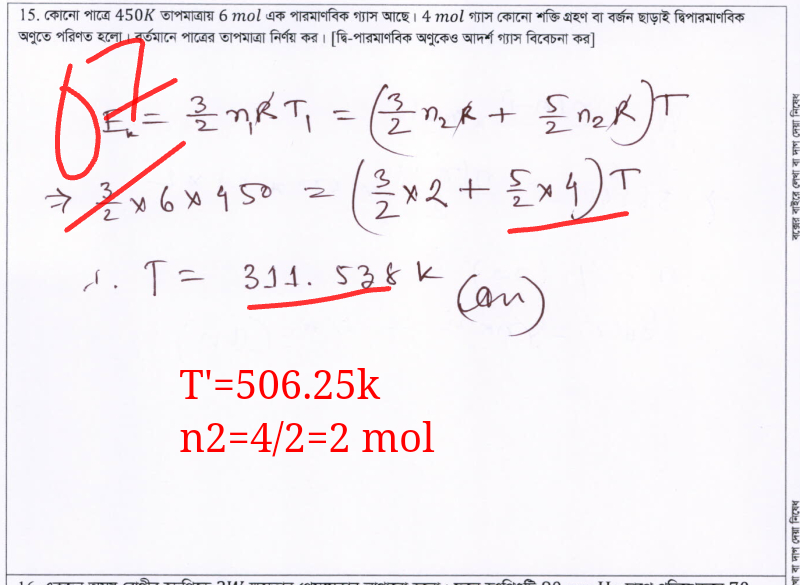 15. কোনো পাত্রে 450K তাপমাত্রায় 6 mol এক পারমাণবিক গ্যাস আছে। 4 mol গ্যাস কোনো শক্তি গ্রহণ বা বর্জন ছাড়াই দ্বিপারমাণবিক
অণুতে পরিণত হলো। বর্তমানে পাত্রের তাপমাত্রা নির্ণয় কর। [দ্বি-পারমাণবিক অণুকেও আদর্শ গ্যাস বিবেচনা কর]
07
E_k = 3/2 n₁R T₁ = (3/2 n₂R + 5/2 n₂R)T
⇒ 3/2 × 6 × 450 = (3/2 × 2 + 5/2 × 4) T
∴ T = 311.538 K (Ans)
T'=506.25k
n2=4/2=2 mol
বক্সের বাইরে লেখা বা দাগ দেয়া নিষেধ
বা দাগ দেয়া নিষেধ